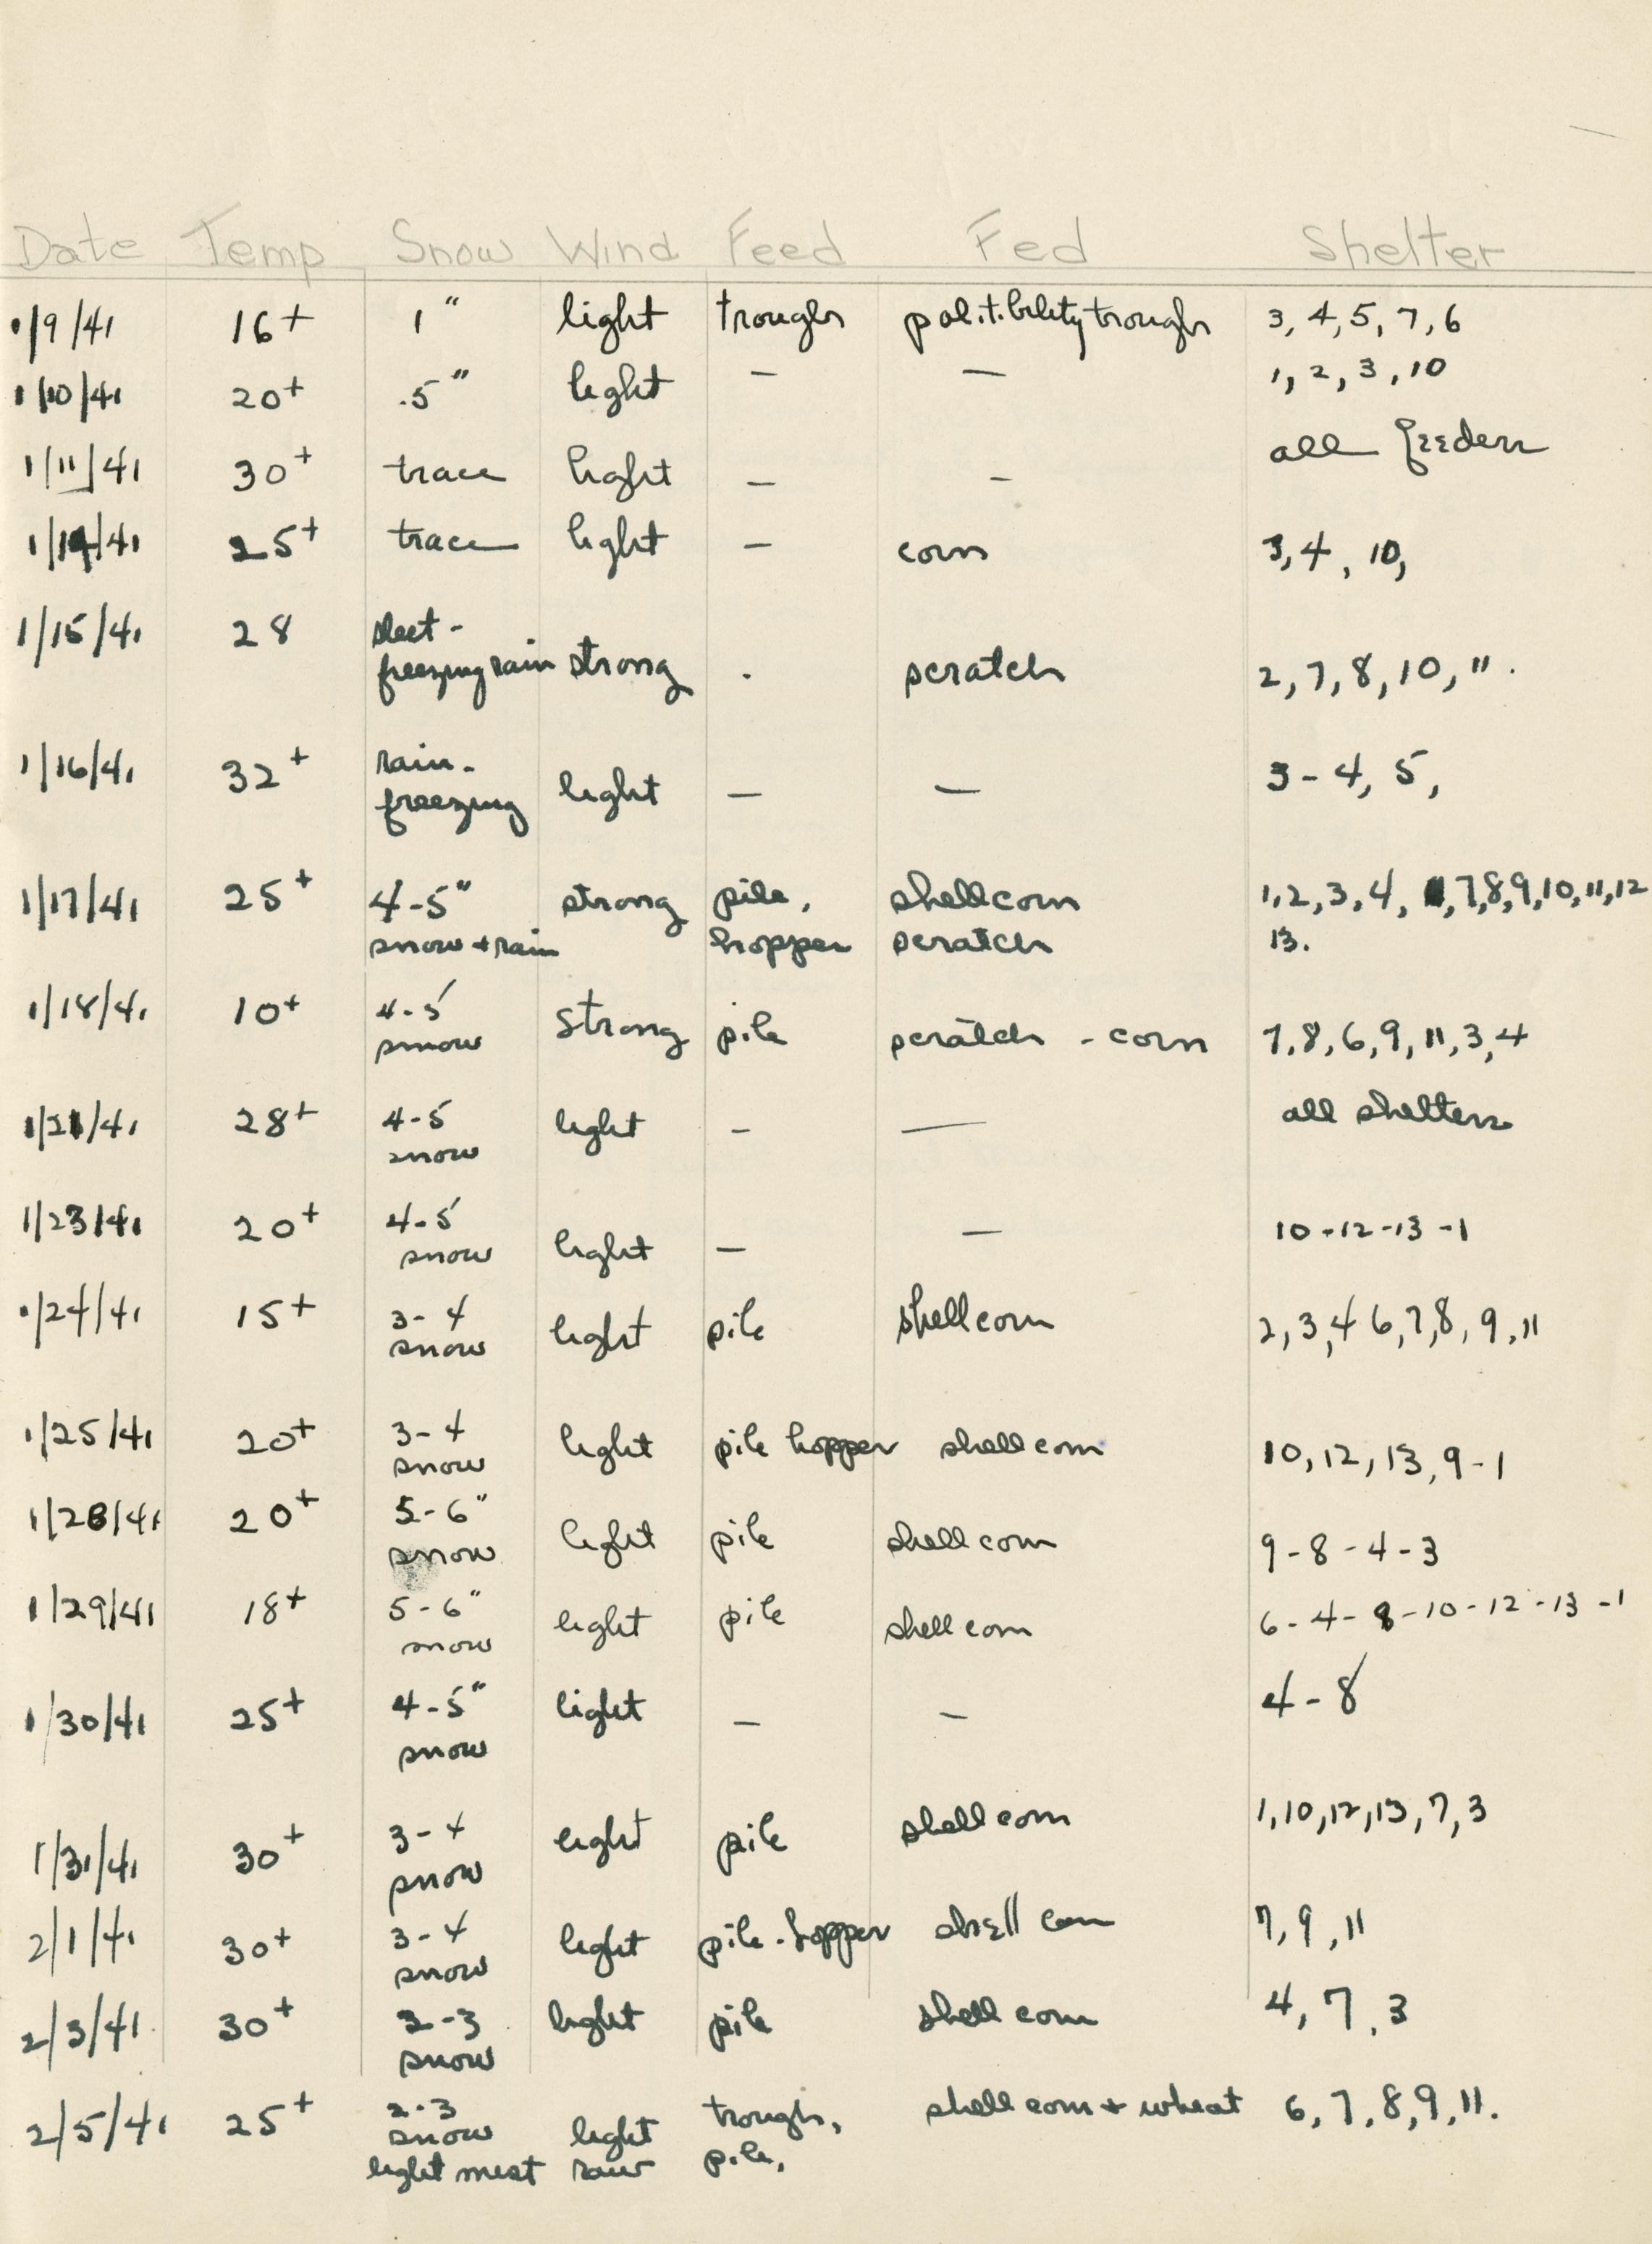 Date Temp Snow Wind Feed Fed Shelter
1/9/41 16+ 1" light troughs palitibility troughs 3, 4, 5, 7, 6
1/10/41 20+ .5" light — — 1, 2, 3, 10
1/11/41 30+ trace light — — all feeders
1/14/41 25+ trace light — corn 3, 4, 10,
1/15/41 28 sleet -
freezing rain strong . scratch 2, 7, 8, 10, 11.
1/16/41 32+ rain - 3 - 4, 5,
freezing light — —
1/17/41 25+ 4-5" strong pile, shellcorn 1,2,3,4, 7,8,9,10,11,12
snow + rain hopper scratch 13.
1/18/41 10+ 4-5
snow strong pile scratch - corn 7,8,6,9,11,3,4
1/21/41 28+ 4-5 light — — all shelters
snow
1/23/41 20+ 4-5 — 10-12-13-1
snow light —
1/24/41 15+ 3-4 shellcorn
snow light pile 2, 3, 4 6, 7, 8, 9, 11
1/25/41 20+ 3-4 light pile hopper shellcorn 10, 12, 13, 9-1
snow
1/28/41 20+ 5-6"
snow light pile shell corn 9-8-4-3
1/29/41 18+ 5-6" light pile shell corn 6-4-8-10-12-13-1
snow
1/30/41 25+ 4-5" light — — 4-8
snow
1/31/41 30+ 3-4 light pile shell corn 1,10,12,13,7,3
snow
2/1/41 30+ 3-4 light pile-hopper shell corn 7, 9, 11
snow
2/3/41 30+ 2-3 light pile shell corn 4, 7, 3
snow
2/5/41 25+ 2-3 trough, shell corn + wheat 6, 7, 8, 9, 11.
snow light
light mist raw pile,